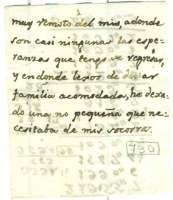 muy remoto del mio, adonde
son casi ningunas las espe-
ranzas que tengo de regresar,
y en donde lexos de dejar
familia acomodada, he dexa-
do una no pequeña que ne-
cesitaba de mis socorros.
730